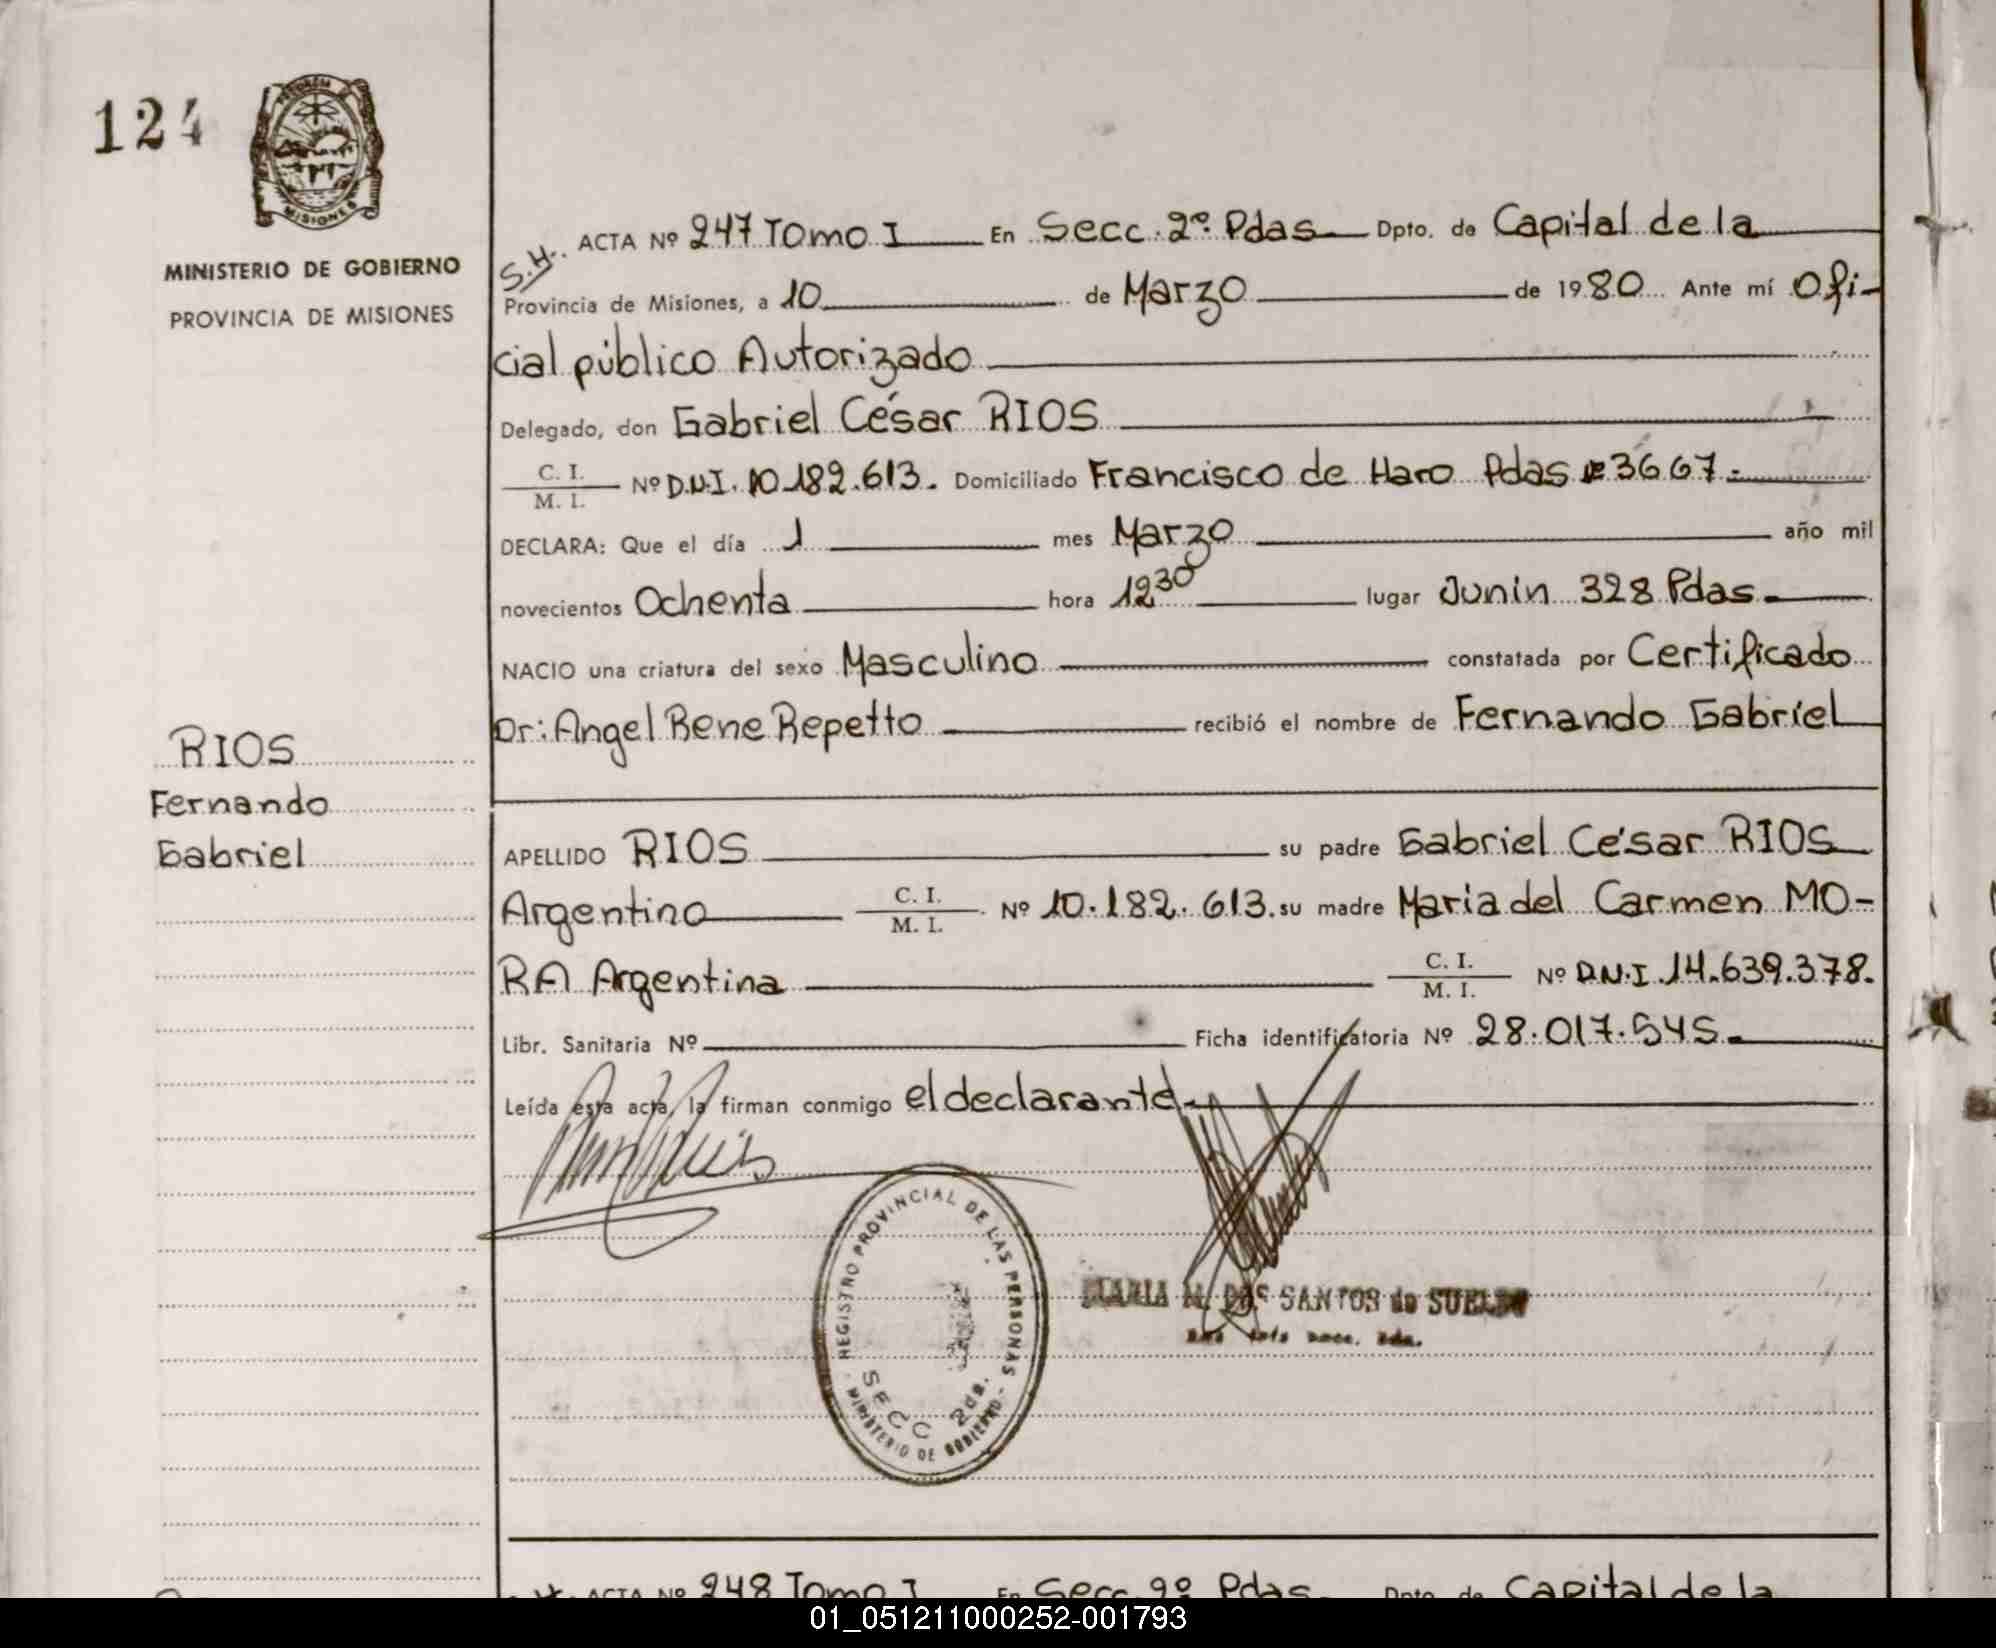 124
MISIONES
MINISTERIO DE GOBIERNO
PROVINCIA DE MISIONES
RIOS
Fernando
Gabriel
S.H. ACTA Nº 247 Tomo I En Secc. 2º Pdas Dpto. de Capital de la
Provincia de Misiones, a 10 de Marzo de 1980 Ante mí Ofi-
cial público Autorizado
Delegado, don Gabriel César RIOS
C. I.
M. I. Nº D.N.I. 10.182.613. Domiciliado Francisco de Haro Pdas 3667.
DECLARA: Que el día 1 mes Marzo año mil
novecientos Ochenta hora 12 30 lugar Junin 328 Pdas.
NACIO una criatura del sexo Masculino constatada por Certificado
Dr: Angel Rene Repetto recibió el nombre de Fernando Gabriel
APELLIDO RIOS su padre Gabriel César RIOS
Argentino C. I. M. I. Nº 10.182.613. su madre Maria del Carmen MO-
RA Argentina C. I. M. I. Nº D.N.I. 14.639.378.
Libr. Sanitaria Nº Ficha identificatoria Nº 28.017.545.
Leída esta acta, la firman conmigo el declarante.
REGISTRO PROVINCIAL DE LAS PERSONAS
MINISTERIO DE GOBIERNO
SECC 2da.
MARIA M. DOS SANTOS de SUELDO
ACTA Nº 248 Tomo I En Secc. 2º Pdas. Dpto. de Capital de la
01_051211000252-001793